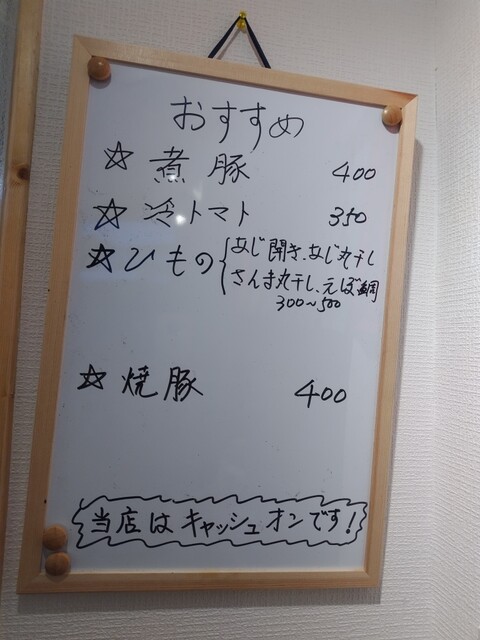 おすすめ
☆ 煮豚 400
☆ 冷トマト 350
☆ ひもの { あじ開き、あじ丸干し
さんま丸干し、えぼ鯛
300〜500
☆ 焼豚 400
当店はキャッシュオンです!